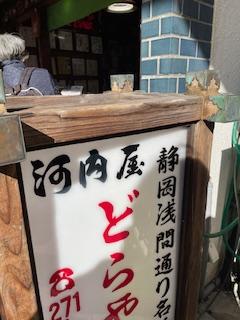 静岡浅間通り名
河内屋
どらや
☎271